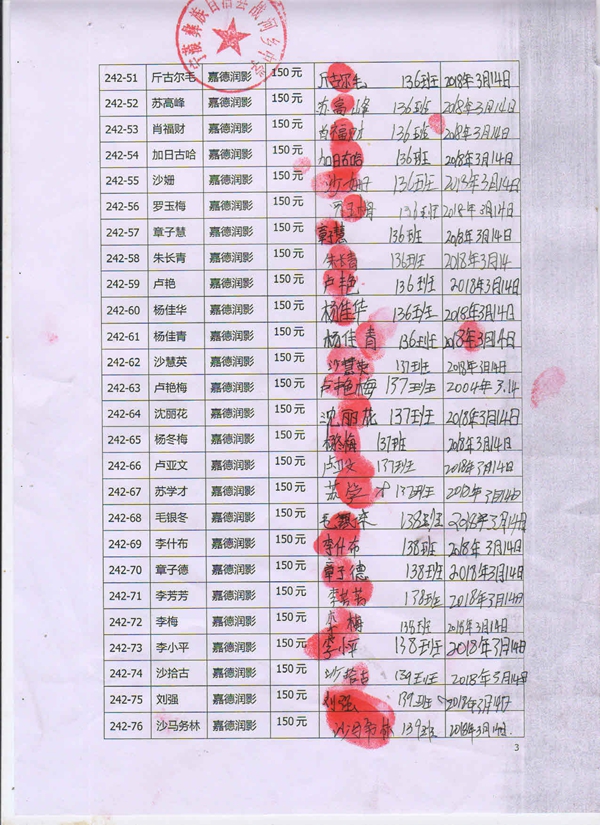 宁蒗彝族自治县战河乡中学
242-51 斤古尔毛 嘉德润影 150元 斤古尔毛 136班 2018年3月14日
242-52 苏高峰 嘉德润影 150元 苏高峰 136班 2018年3月14日
242-53 肖福财 嘉德润影 150元 肖福财 136班 2018年3月14日
242-54 加日古哈 嘉德润影 150元 加日古哈 136班 2018年3月14日
242-55 沙姗 嘉德润影 150元 沙姗 136班 2018年3月14日
242-56 罗玉梅 嘉德润影 150元 罗玉梅 136班 2018年3月14日
242-57 章子慧 嘉德润影 150元 章子慧 136班 2018年3月14日
242-58 朱长青 嘉德润影 150元 朱长青 136班 2018年3月14日
242-59 卢艳 嘉德润影 150元 卢艳 136班 2018年3月14日
242-60 杨佳华 嘉德润影 150元 杨佳华 136班 2018年3月14日
242-61 杨佳青 嘉德润影 150元 杨佳青 136班 2018年3月14日
242-62 沙慧英 嘉德润影 150元 沙慧英 137班 2018年3月14日
242-63 卢艳梅 嘉德润影 150元 卢艳梅 137班 2004年.3.14
242-64 沈丽花 嘉德润影 150元 沈丽花 137班 2018年3月14日
242-65 杨冬梅 嘉德润影 150元 杨冬梅 137班 2018年3月14日
242-66 卢亚文 嘉德润影 150元 卢亚文 137班 2018年3月14日
242-67 苏学才 嘉德润影 150元 苏学才 137班 2018年3月14日
242-68 毛银冬 嘉德润影 150元 毛银冬 138班 2018年3月14日
242-69 李什布 嘉德润影 150元 李什布 138班 2018年3月14日
242-70 章子德 嘉德润影 150元 章子德 138班 2018年3月14日
242-71 李芳芳 嘉德润影 150元 李芳芳 138班 2018年3月14日
242-72 李梅 嘉德润影 150元 李梅 138班 2018年3月14日
242-73 李小平 嘉德润影 150元 李小平 138班 2018年3月14日
242-74 沙拾古 嘉德润影 150元 沙拾古 139班 2018年3月14日
242-75 刘强 嘉德润影 150元 刘强 139班 2018年3月14日
242-76 沙马务林 嘉德润影 150元 沙马务林 139班 2018年3月14日
3